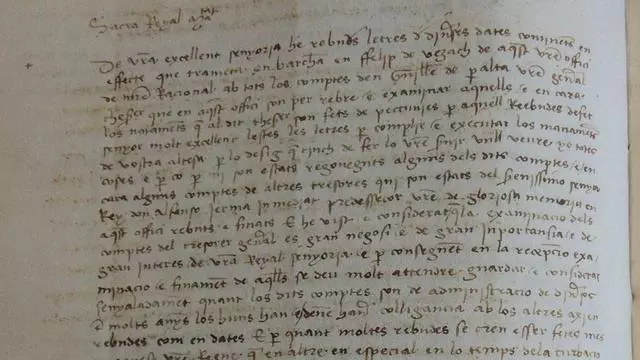 Sacra Reyal Ma.tat
De vr̃a excellent senyoria he rebudes letres de diu̾ses dates continents en
effecte que trameta en barchn̾a en ffelip de vezach de aq̃st vr̃e offici
de mr̃e Racional ab tots los comptes den Guill̃e de peralta vr̃e gñal
thesr̃er que en aq̃st offici son per rebre e examinar aquells e en cara
los notaments q̃ al dit thesr̃er son fets de peccunies per aquell Reebudes de fet
senyor molt excellent lestes les letres per complir e executar los manaments
de vostra altesa per lo desig q̃ tinch de fer lo vr̃e s̃uir vull veure totes
coses e per ço per mi son estats regoneguts alguns dels dits comptes e en
cara alguns comptes de altres tresorers qui son estats del serenissimo senyor
Rey don Alfonso jerma inmediat predessessor vr̃e de gloriosa memoria en
aq̃st offici rebuts e finats E he vist e considerat q̃ la examinacio dels
comptes del tresorer gñal es gran negosi e de gran importansia e de
gran interes de vr̃a Reyal senyoria e per consegnet en la recepcio exa
minacio e finament de aq̃lls se deu molt attendre guardar e considerar
senyaladament quant los dits comptes son de administracio de diu̾sos
e molts anys los huns han colligancia ab los altres axi en
rebudes com en dates E per quant moltes rebudes se cren esser fetes mes
en altre en especial en lo temps de la